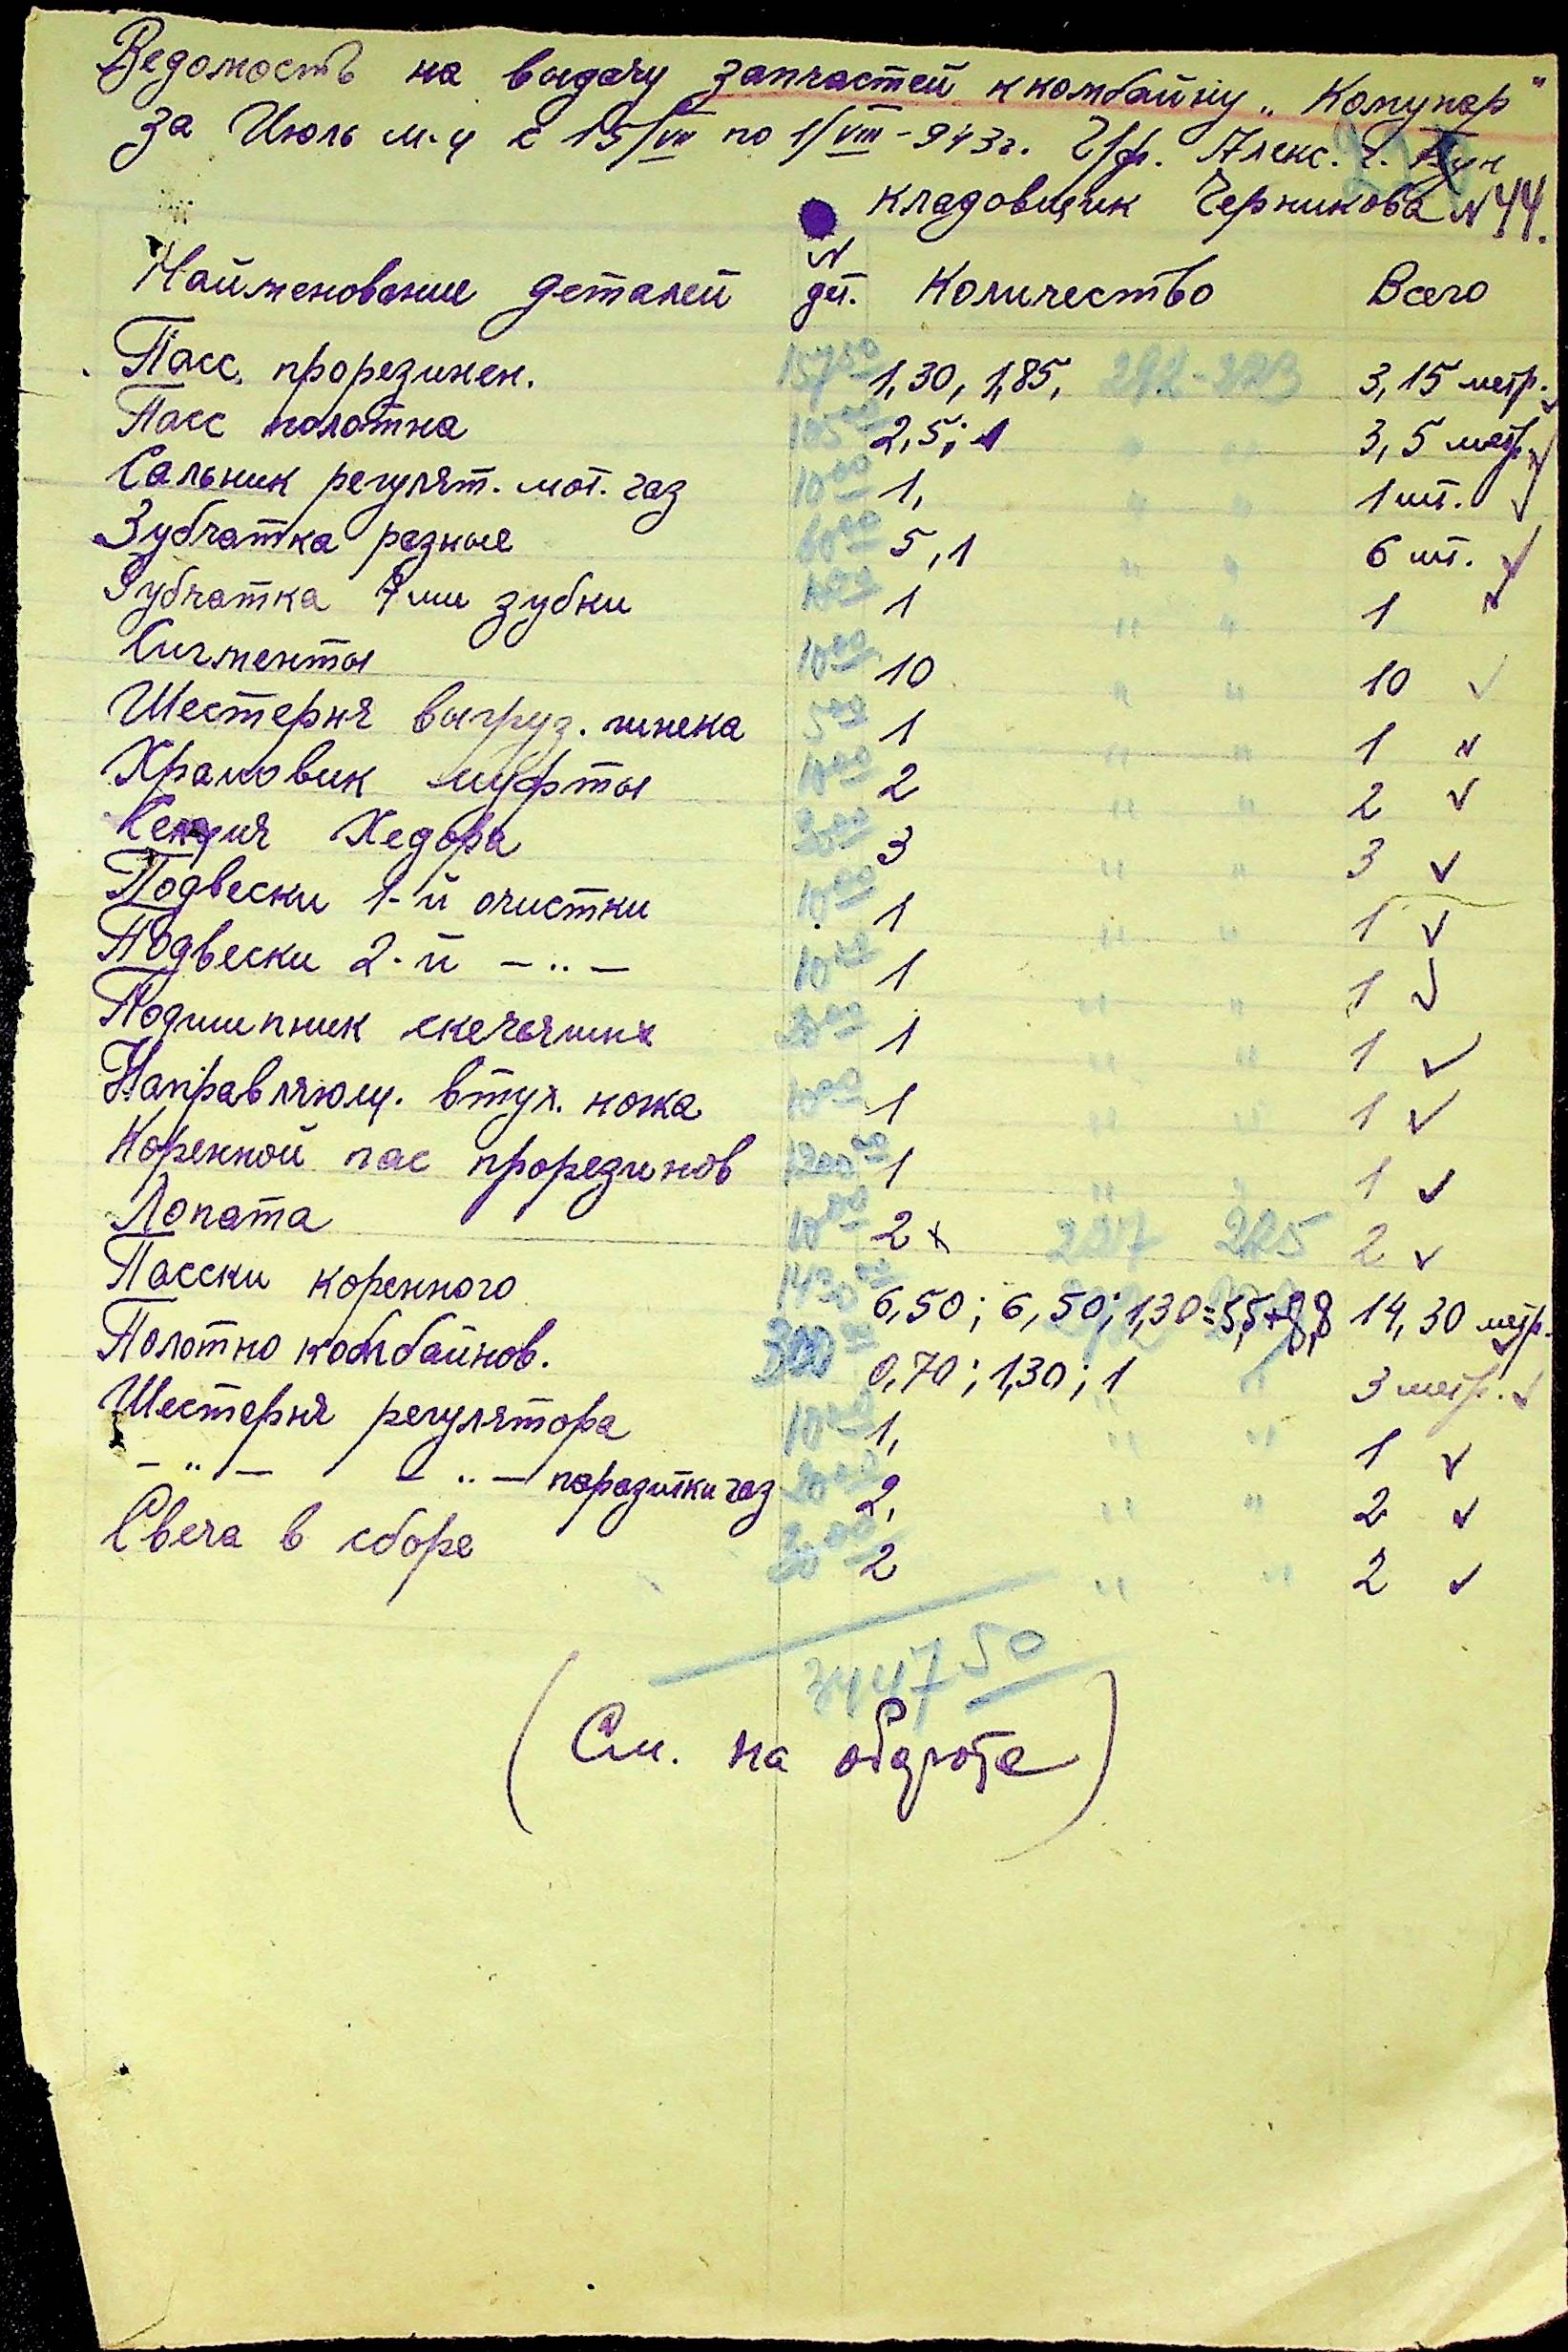 Ведомость на выдачу запчастей к комбайну „Комунар"
За Июль м-ц с 15/VII по 1/VIII-943г. Алекс.
кладовщик Черникова N 44.
Наименование деталей N дет. Количество Всего
Пасс. прорезинен. 157 50 1,30, 1,85, 292-223 3,15 метр.
Пасс полотна 105 00 2,5; 1 3,5 метр.
Сальник регулят. мот. газ 10 00 1, " " 1 шт.
Зубчатка разные 60 00 5,1 " " 6 шт.
Зубчатка 7ми зубки 1 " " 1
Сигменты 10 00 10 " " 10
Шестерня выгруз. шнека 5 00 1 " " 1
Храповик муфты 10 00 2 " " 2
Хедора 3 " " 3
Подвески 1-й очистки 10 00 1 " " 1
Подвески 2-й — .. — 10 00 1 " " 1
Подшипник 1 " " 1
Направляющ. втул. ножа 10 00 1 " " 1
Коренной пас прорезинов 1200 00 1 " " 1
Лопата 10 00 2 x 227 225 2
Пасски коренного 1430 00 6,50; 6,50; 1,30=5,5+8,8 14,30 метр.
Полотно комбайнов. 300 00 0,70; 1,30; 1 " 3 метр.
Шестерня регулятора 10 00 1, " " 1
— .. — — .. — газ 20 00 2, " " 2
Свеча в сборе 30 00 2 " " 2
3447 50
(См. на обароте)